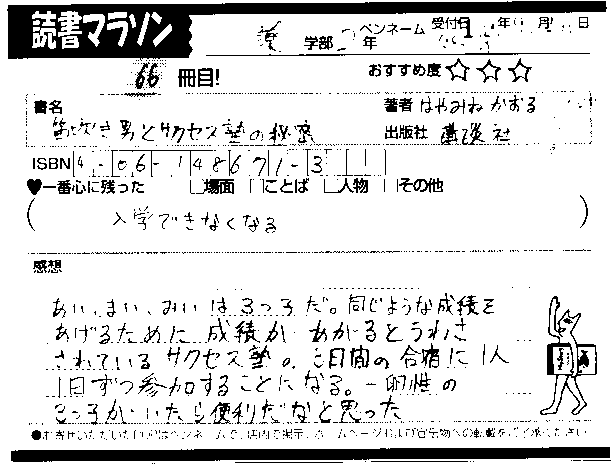 読書マラソン
学部 2年 ペンネーム 受付日 年 月 日
66 冊目! おすすめ度☆☆☆
書名 笛吹き男とサクセス塾の秘密
著者 はやみねかおる
出版社 講談社
ISBN 4-06-148671-3
♥一番心に残った □場面 □ことば □人物 □その他
( 入学できなくなる )
感想
あい、まい、みいは3つ子だ。同じような成績を
あげるために成績があがるとうわさ
されているサクセス塾の、3日間の合宿に1人
1日ずつ参加することになる。一卵性の
3つ子がいたら便利だなと思った